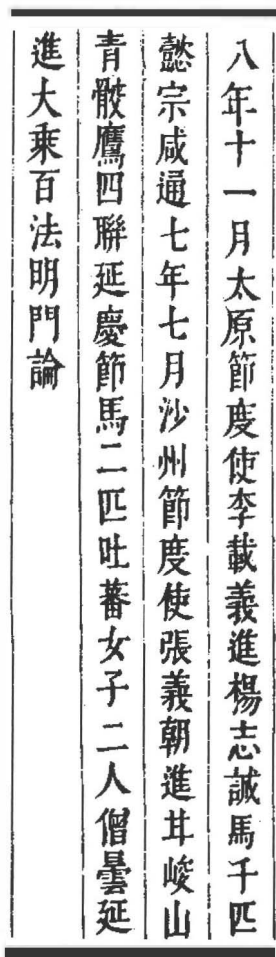 八年十一月太原節度使李載義進楊志誠馬千匹
懿宗咸通七年七月沙州節度使張義朝進甘峻山
青骹鷹四聯延慶節馬二匹吐蕃女子二人僧曇延
進大乘百法明門論